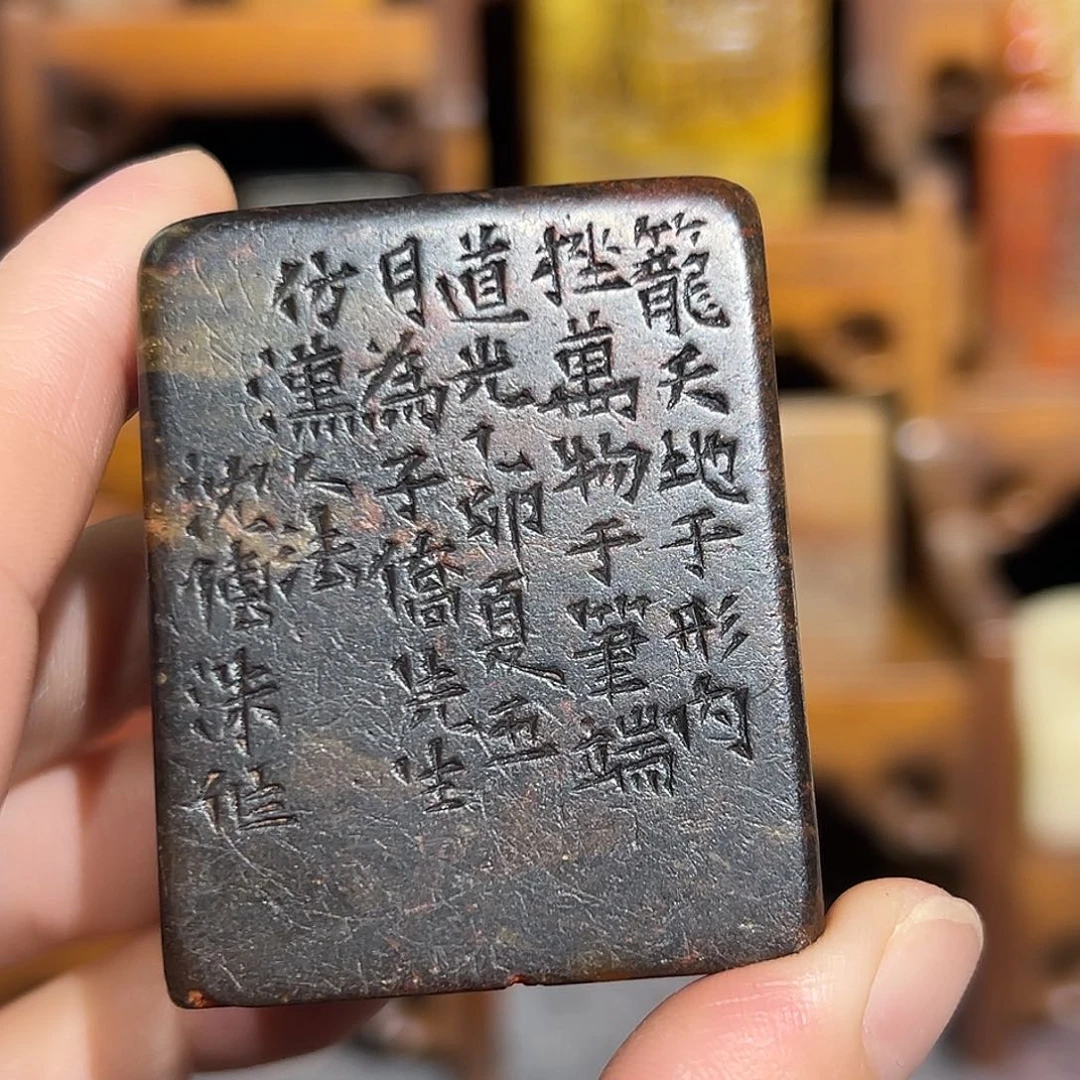 籠天地于形內
挫萬物于筆端
道光乙卯夏五
月為子僑先生
仿漢人法
深